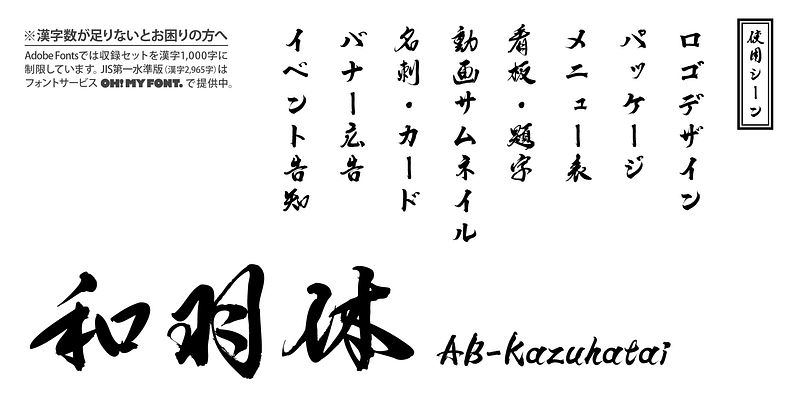 使用シーン
ロゴデザイン
パッケージ
メニュー表
看板・題字
動画サムネイル
名刺・カード
バナー広告
イベント告知
※漢字数が足りないとお困りの方へ
Adobe Fontsでは収録セットを漢字1,000字に
制限しています。JIS第一水準版（漢字2,965字）は
フォントサービス OH! MY FONT. で提供中。
和羽体
AB-Kazuhatai